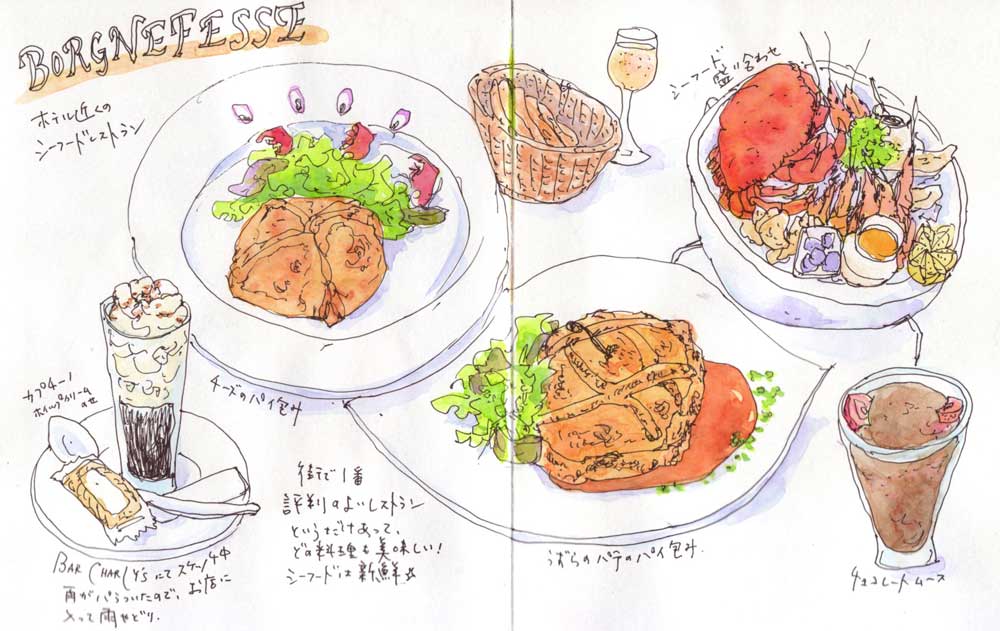 BORGNEFESSE
ホテル近くの
シーフードレストラン
シーフード
盛り合わせ
チーズのパイ包み
カプチーノ
ホイップクリーム
のせ
街で1番
評判のよいレストラン
というだけあって、
どの料理も美味しい!
シーフードは新鮮☆
うずらのパテのパイ包み.
チョコレートムース
BAR CHARLY'S にてスケッチ中
雨がパラついたので、お店に
入って雨やどり.